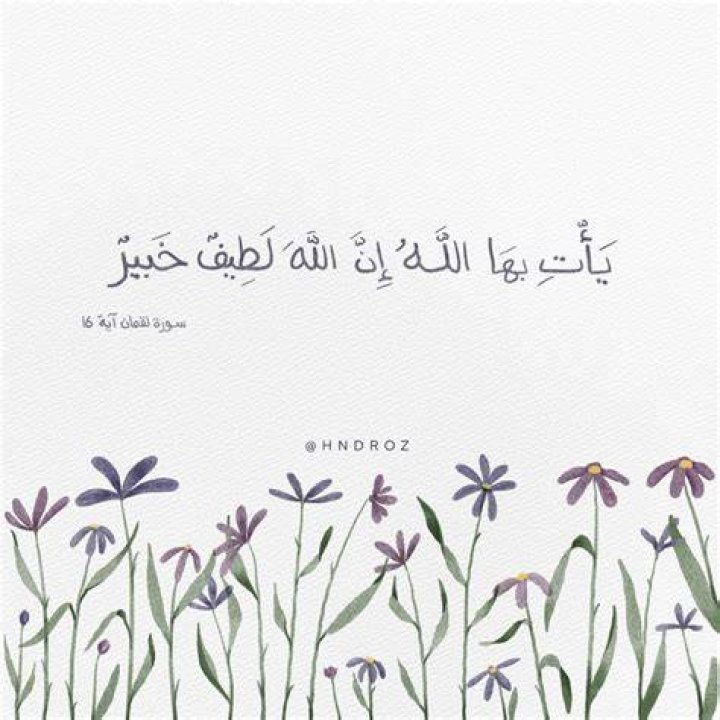 يَأْتِ بِهَا اللَّهُ إِنَّ اللَّهَ لَطِيفٌ خَبِيرٌ
سورة لقمان آية 16
@HNDROZ